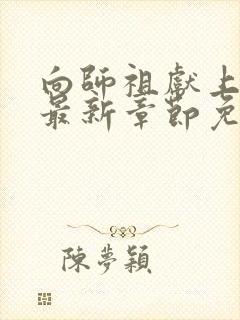 向師祖獻上
最新章節免
陳夢穎